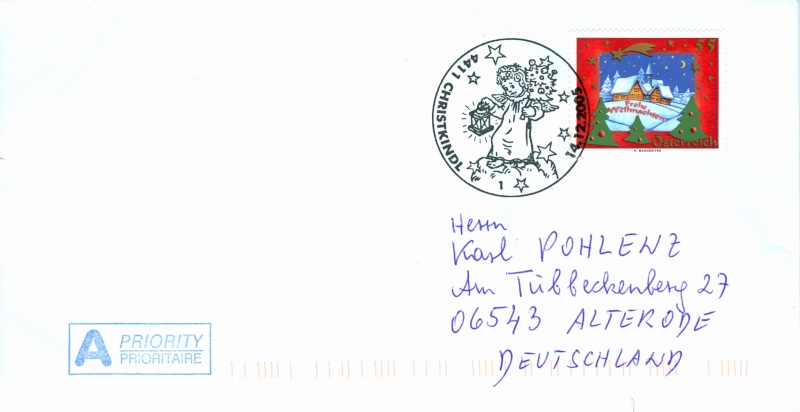 4411 CHRISTKINDL
14.12.2005
1
55
Frohe
Weihnachten
Österreich
Herrn
Karl POHLENZ
Am Tübbeckenberg 27
06543 ALTERODE
DEUTSCHLAND
A PRIORITY
PRIORITAIRE